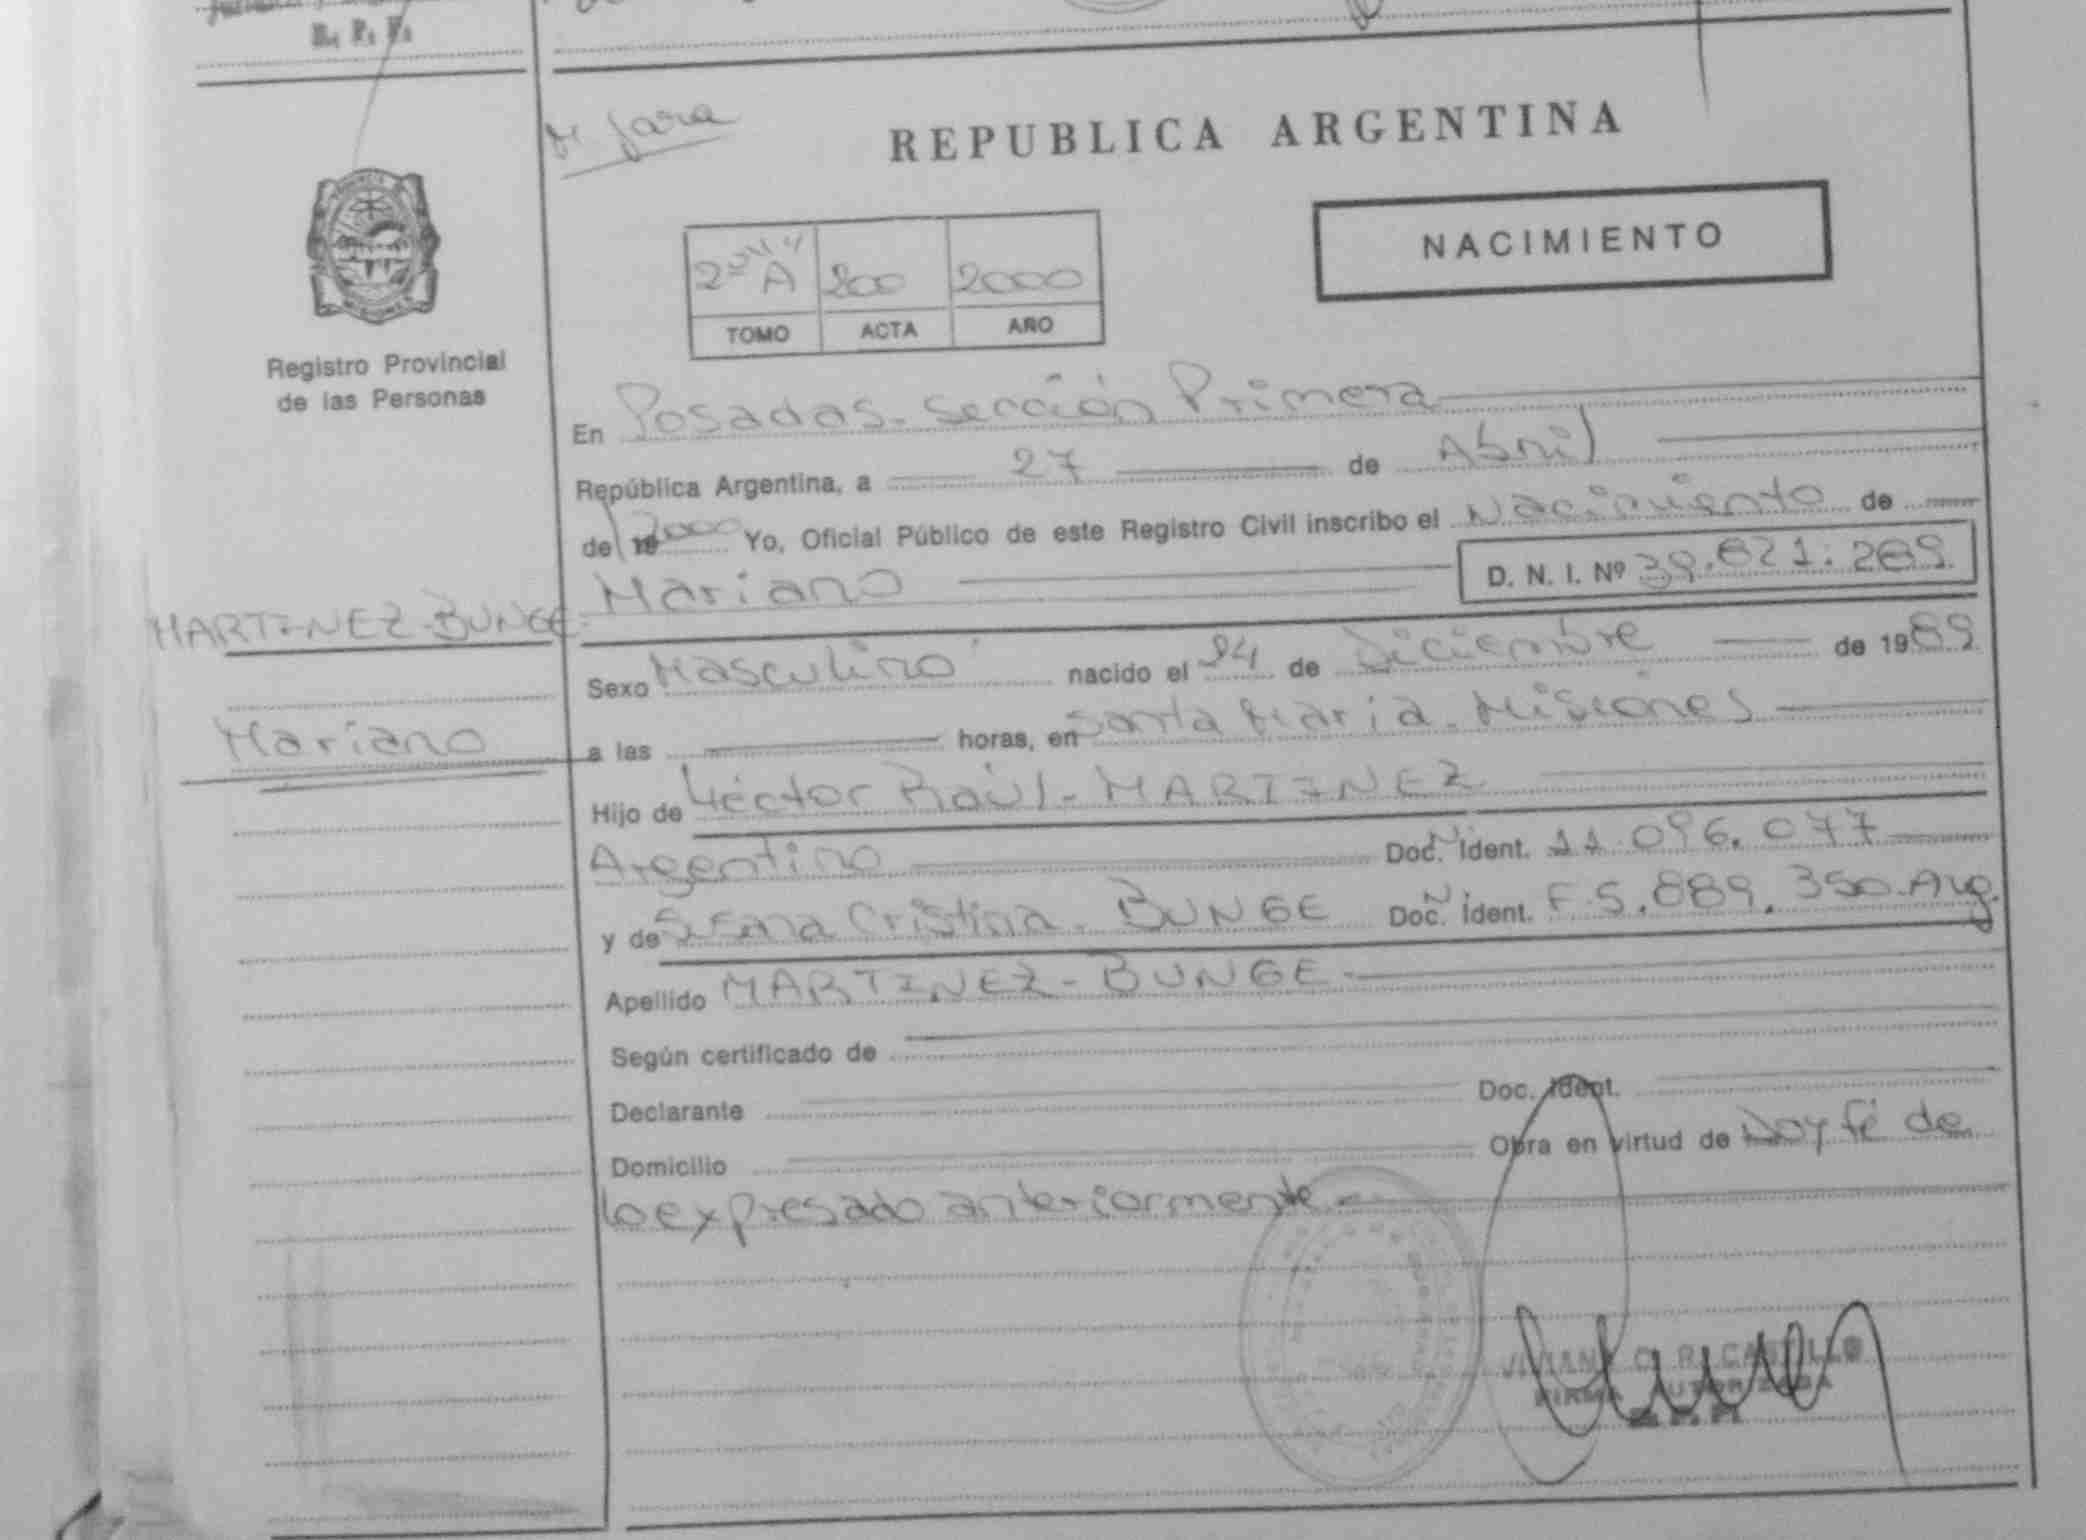 R. P. P.
M. Jara
REPUBLICA ARGENTINA
NACIMIENTO
A 200 2000
TOMO ACTA AÑO
Registro Provincial
de las Personas
En Posadas - Sección Primera
República Argentina, a 27 de Abril
de 19 2000 Yo, Oficial Público de este Registro Civil inscribo el Nacimiento de
Mariano D. N. I. Nº 39.821.289
MARTINEZ-BUNGE
Mariano
Sexo Masculino nacido el 24 de Diciembre de 1989
a las horas, en Santa Maria. Misiones
Hijo de Héctor Raúl - MARTINEZ
Argentino Doc. Ident. 11.096.077
y de Susana Cristina. BUNGE Doc. Ident. F 5.889.350. Arg.
Apellido MARTINEZ - BUNGE
Según certificado de
Declarante Doc. Ident.
Domicilio Obra en virtud de Doy fé de
lo expresado anteriormente
FIRMA AUTORIZADA